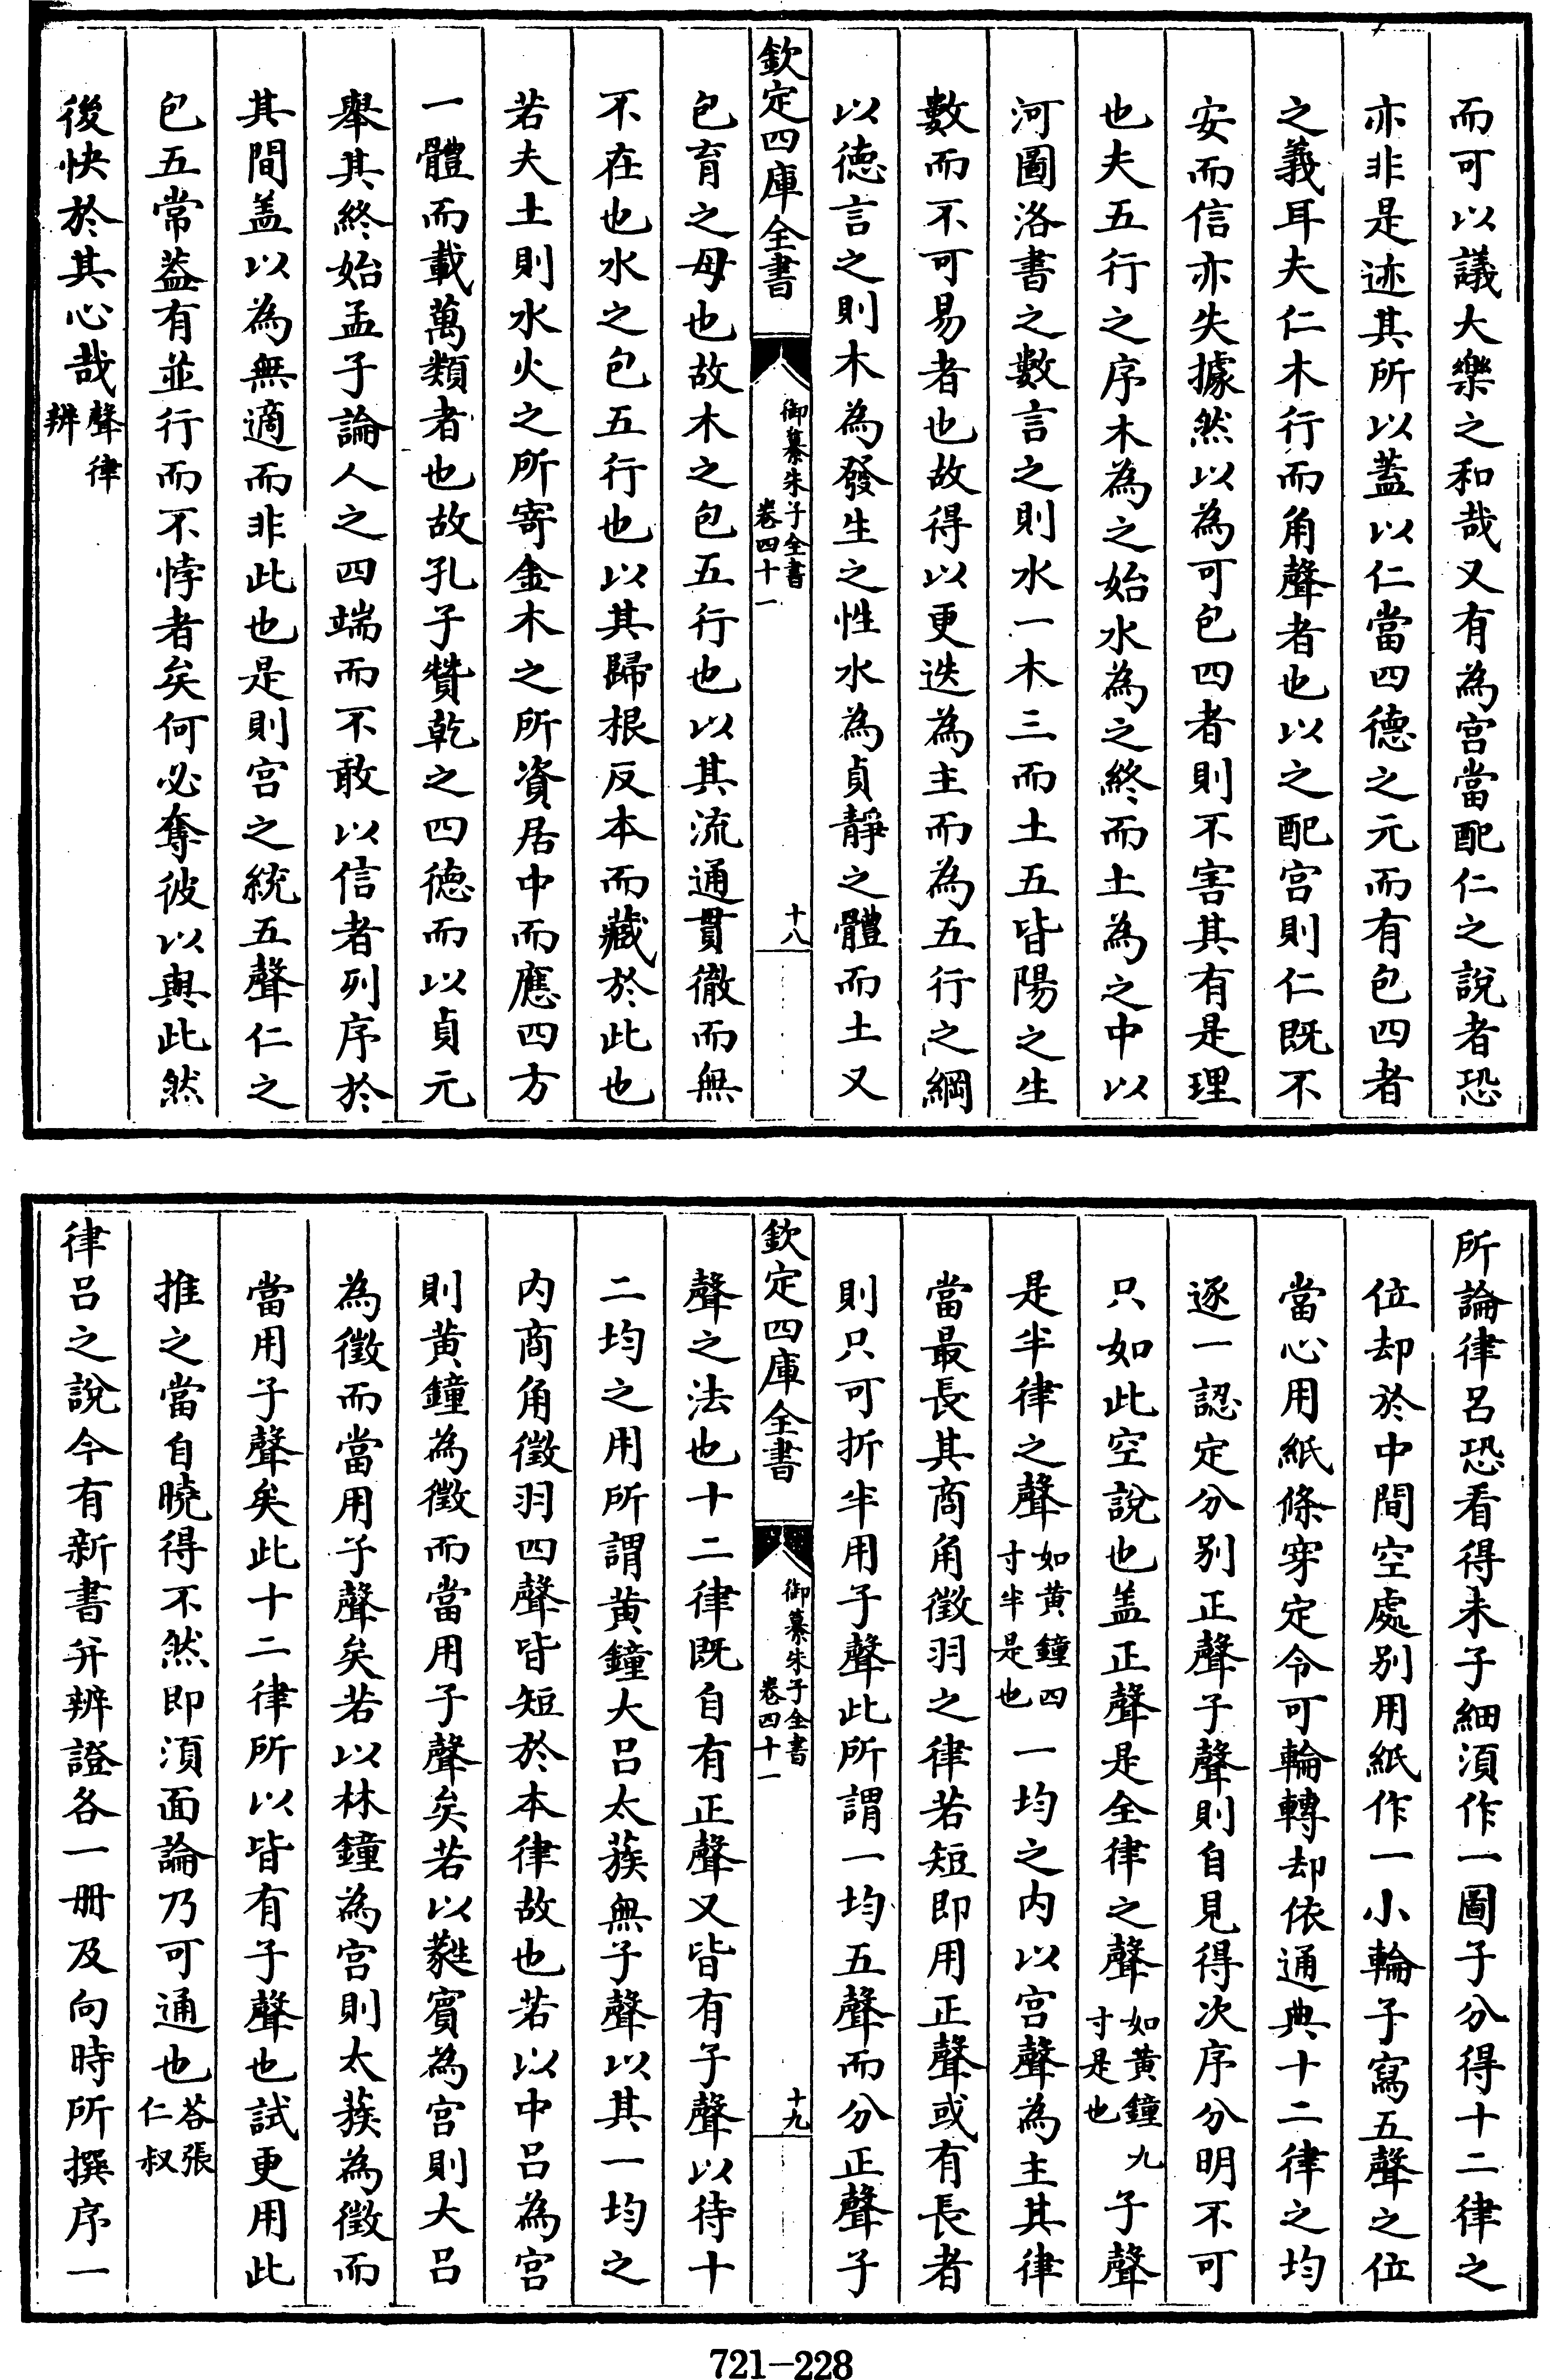 而可以議大樂之和哉又有為宮當配仁之說者恐
亦非是迹其所以蓋以仁當四德之元而有包四者
之義耳夫仁木行而角聲者也以之配宮則仁既不
安而信亦失據然以為可包四者則不害其有是理
也夫五行之序木為之始水為之終而土為之中以
河圖洛書之數言之則水一木三而土五皆陽之生
數而不可易者也故得以更迭為主而為五行之綱
以徳言之則木為發生之性水為貞靜之體而土又
欽定四庫全書
御纂朱子全書
卷四十一
十八
包育之母也故木之包五行也以其流通貫徹而無
不在也水之包五行也以其歸根反本而藏於此也
若夫土則水火之所寄金木之所資居中而應四方
一體而載萬類者也故孔子贊乾之四徳而以貞元
舉其終始孟子論人之四端而不敢以信者列序於
其間盖以為無適而非此也是則宮之統五聲仁之
包五常葢有並行而不悖者矣何必奪彼以與此然
後快於其心哉聲律
辨
所論律呂恐看得未子細湏作一圖子分得十二律之
位却於中間空處别用紙作一小輪子寫五聲之位
當心用紙條穿定令可輪轉却依通典十二律之均
逐一認定分别正聲子聲則自見得次序分明不可
只如此空說也盖正聲是全律之聲如黄鐘九
寸是也子聲
是半律之聲如黄鐘四
寸半是也一均之内以宮聲為主其律
當最長其商角徵羽之律若短即用正聲或有長者
則只可折半用子聲此所謂一均五聲而分正聲子
欽定四庫全書
御纂朱子全書
卷四十一
十九
聲之法也十二律既自有正聲又皆有子聲以待十
二均之用所謂黄鐘大呂太蔟無子聲以其一均之
内商角徵羽四聲皆短於本律故也若以中呂為宮
則黄鐘為徵而當用子聲矣若以蕤賓為宮則大呂
為徵而當用子聲矣若以林鐘為宮則太蔟為徵而
當用子聲矣此十二律所以皆有子聲也試更用此
推之當自曉得不然即湏面論乃可通也答張
仁叔
律呂之說今有新書并辨證各一冊及向時所撰序一
721-228